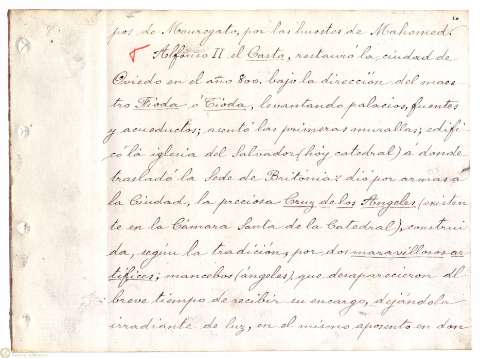 pos de Mauregato, por las huestes de Mahomed.
Alfonso II el Casto, restauró la ciudad de
Oviedo en el año 800. bajo la dirección del maes
tro Fioda ó Tioda, levantando palacios, fuentes
y acueductos; asentó las primeras murallas; edifi
có la iglesia del Salvador (hoy catedral) á donde
trasladó la Sede de Britonia: dió por armas á
la Ciudad, la preciosa Cruz de los Angeles (existen
te en la Cámara Santa de la Catedral), construi
da, según la tradición, por dos maravillosos ar
tífices; mancebos (ángeles), que desaparecieron al
breve tiempo de recibir su encargo, dejándola
irradiante de luz, en el mismo aposento en don